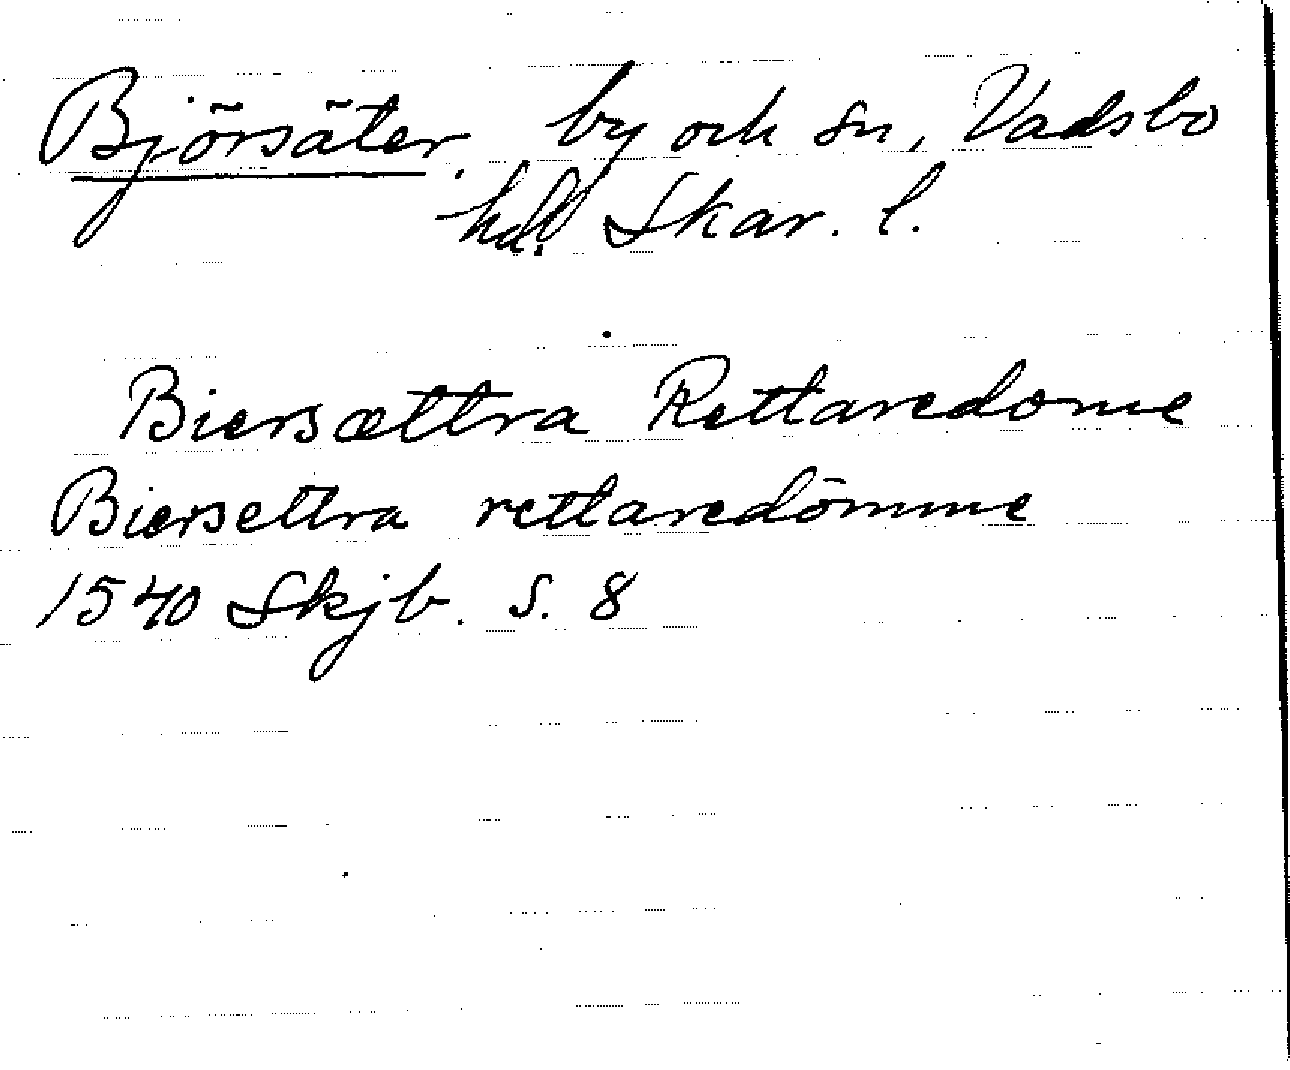 Björsäter, by och sn, Vadsbo
hd. Skar. l.
Biersættra Rettaredome
Biersettra rettaredömme
1540 Skjb. S. 8